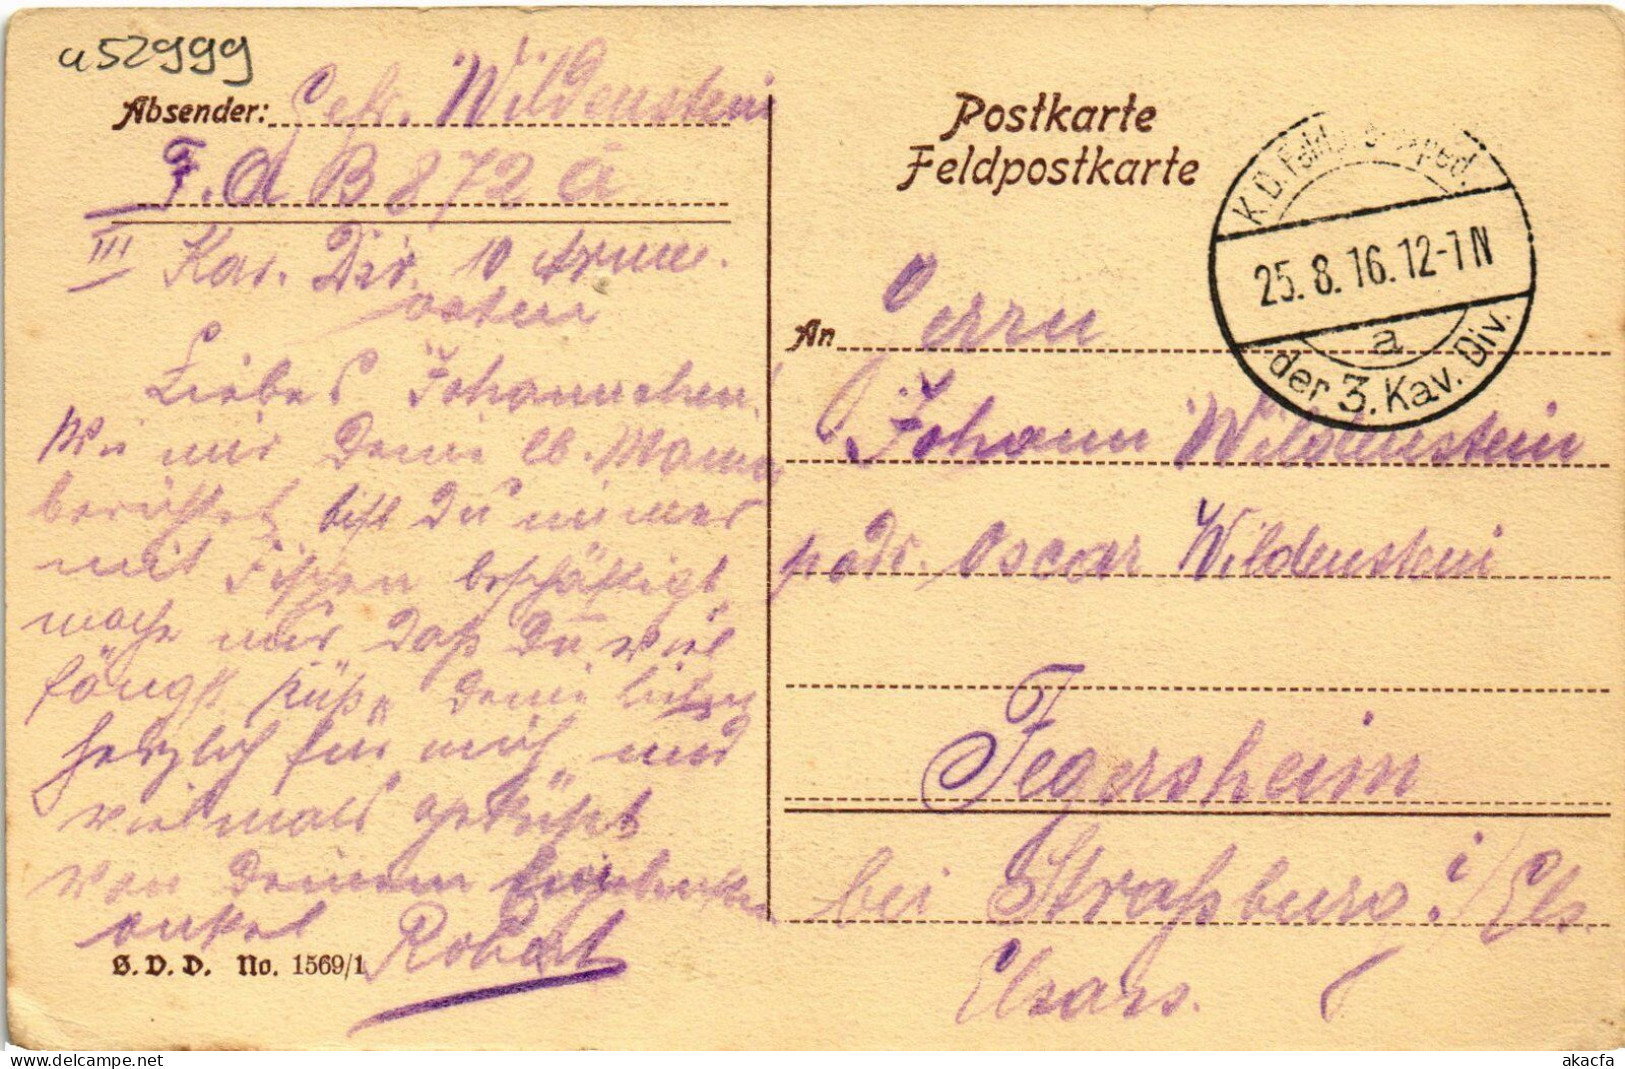 a52999
Absender: Gefr. Wildenstein
F. A. B 872 a
III Kav. Div. 10 Armee.
Osten
Liebes Johannchen!
Wie mir Deine lb. Mama
berichtet bist Du immer
mit Fischen beschäftigt
mache nur daß Du viel
fängst küße Deine lieben
herzlich für mich und
vielmals geküßt
von Deinem
Onkel Robert
S. V. D. No. 1569/1
Postkarte
Feldpostkarte
K. D. Feldp. Exped.
25. 8. 16. 12-1 N
a
der 3. Kav. Div.
An Herrn
Johann Wildenstein
p. adr. Oscar Wildenstein
Fegersheim
bei Straßburg i/Els.
Elsass.
akacfa